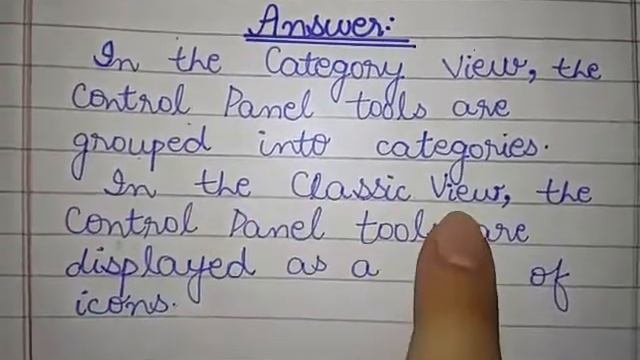 Answer:
In the Category View, the
Control Panel tools are
grouped into categories.
In the Classic View, the
Control Panel tools are
displayed as a of
icons.